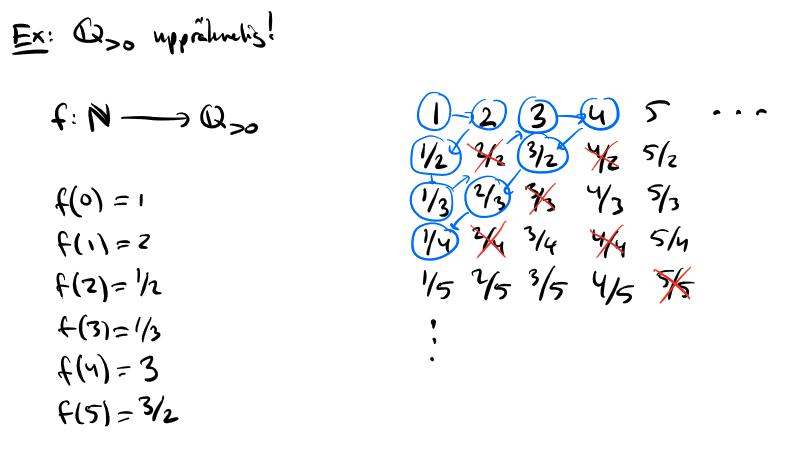 Ex: ℚ>0 uppräknelig!
f: ℕ ⟶ ℚ>0
f(0) = 1
f(1) = 2
f(2) = 1/2
f(3) = 1/3
f(4) = 3
f(5) = 3/2
1 2 3 4 5 ...
1/2 2/2 3/2 4/2 5/2
1/3 2/3 3/3 4/3 5/3
1/4 2/4 3/4 4/4 5/4
1/5 2/5 3/5 4/5 5/5
⋮